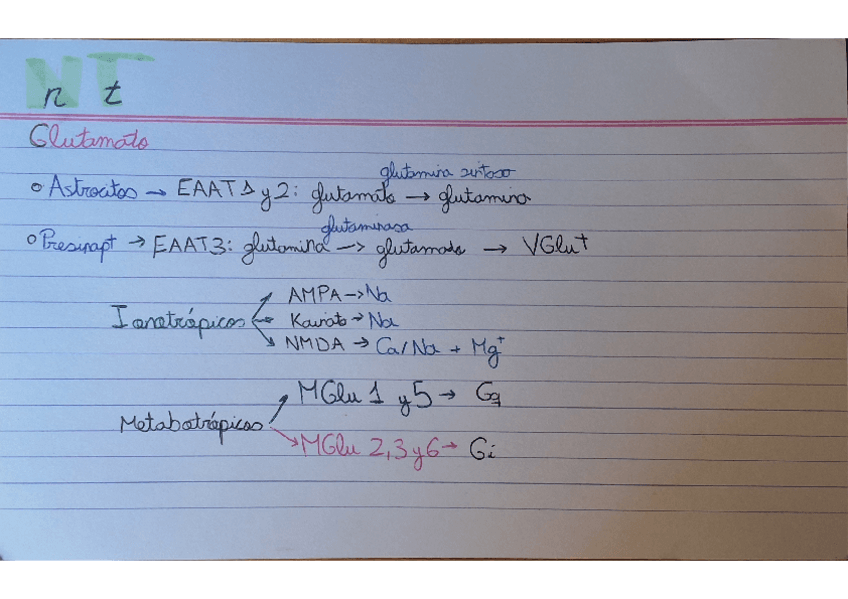 NT
n t
Glutamato
glutamina sintasa
o Astrocitos → EAAT 1 y 2: glutamato → glutamina
glutaminasa
o Presinapt → EAAT3: glutamina → glutamato → VGlut
Ionotrópicos
AMPA → Na
Kainato → Na
NMDA → Ca/Na + Mg⁺
Metabotrópicos
MGlu 1 y 5 → Gq
MGlu 2,3 y 6 → Gi